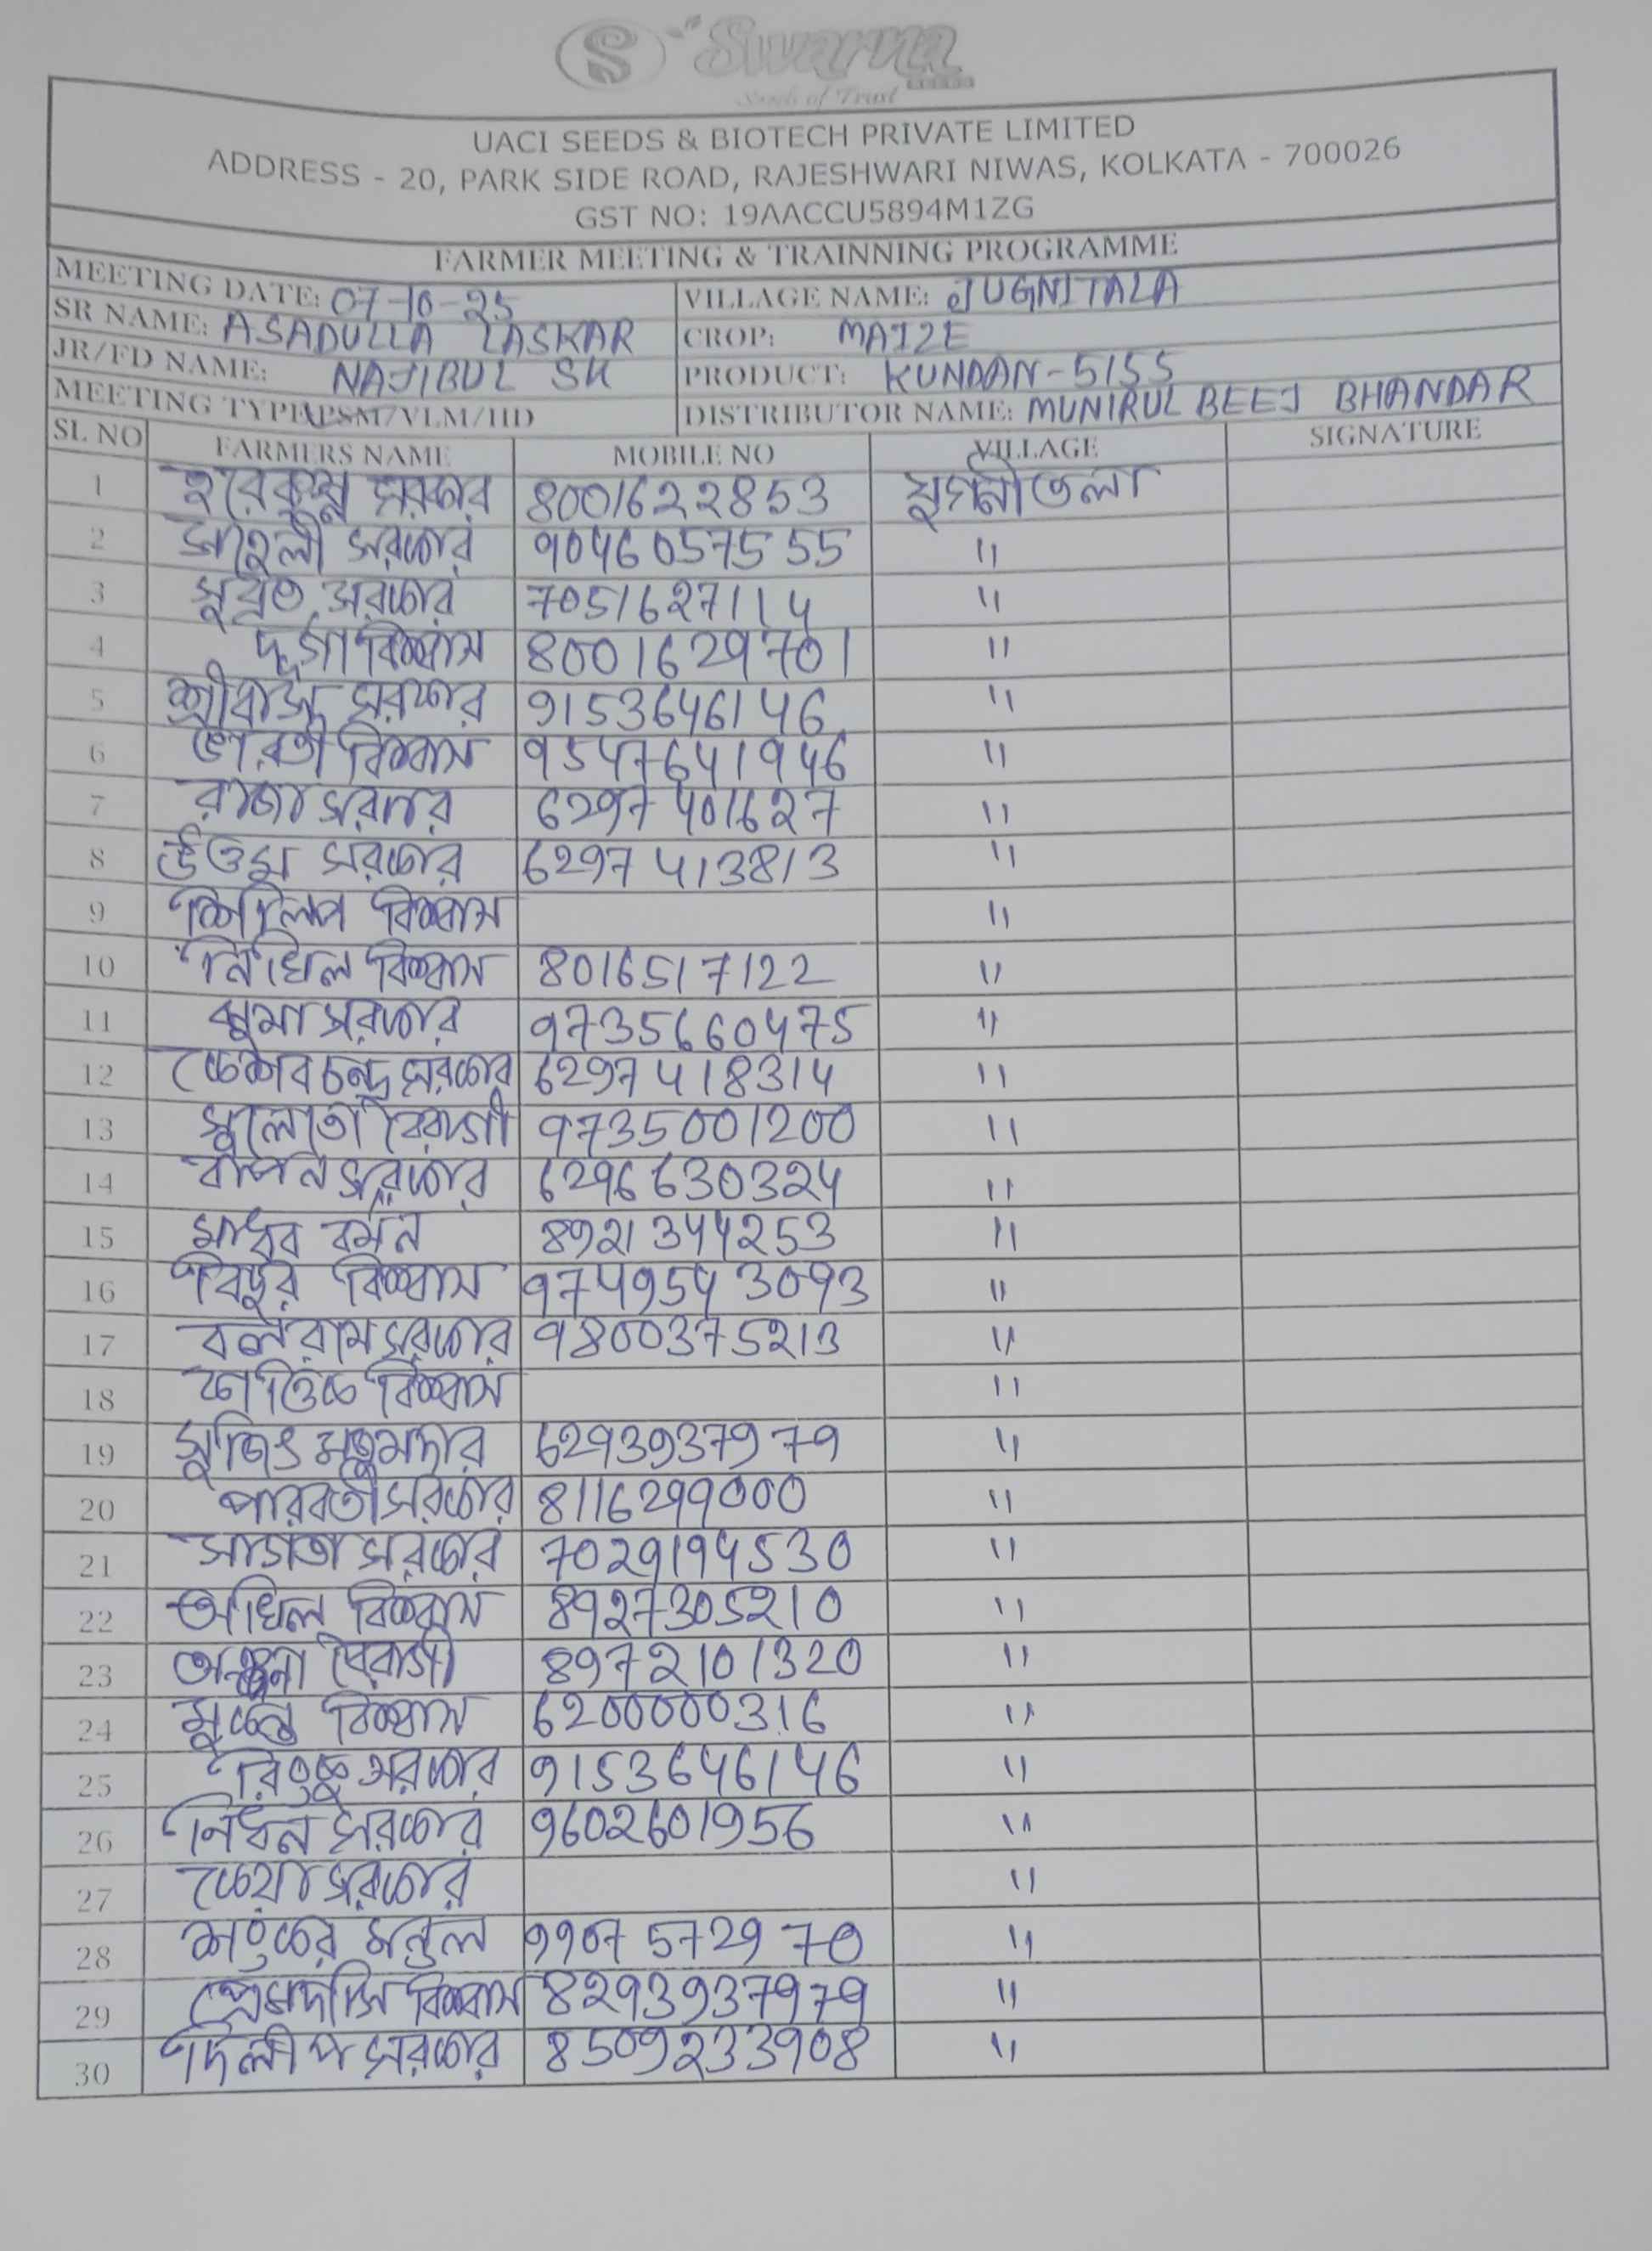 S Swarna
Seeds of Trust
UACI SEEDS & BIOTECH PRIVATE LIMITED
ADDRESS - 20, PARK SIDE ROAD, RAJESHWARI NIWAS, KOLKATA - 700026
GST NO: 19AACCU5894M1ZG
FARMER MEETING & TRAINNING PROGRAMME
MEETING DATE: 07-10-25 VILLAGE NAME: JUGNITALA
SR NAME: ASADULLA LASKAR CROP: MAIZE
JR/FD NAME: NAJIBUL SK PRODUCT: KUNDAN-5155
MEETING TYPE: PSM/VLM/HD DISTRIBUTOR NAME: MUNIRUL BEEJ BHANDAR
SL NO FARMERS NAME MOBILE NO VILLAGE SIGNATURE
1 হরেকৃষ্ণ সরকার 8001622853 যুগনীতলা
2 সরকার 9046057555 "
3 সুব্রত সরকার 7051627114 "
4 দুর্গা বিশ্বাস 8001629701 "
5 সরকার 9153646146 "
6 ভারতী বিশ্বাস 9547641946 "
7 রাজা সরকার 6297401627 "
8 উত্তম সরকার 6297413813 "
9 বিশ্বাস "
10 নিখিল বিশ্বাস 8016517122 "
11 ঝুমা সরকার 9735660475 "
12 কেশব চন্দ্র সরকার 6297418314 "
13 সুলতা বৈরাগী 9735001200 "
14 বাপন সরকার 6296630324 "
15 মাধব বর্মন 8921344253 "
16 বিদুর বিশ্বাস 9749543093 "
17 বলরাম সরকার 9800375213 "
18 কার্তিক বিশ্বাস "
19 সুজিৎ মজুমদার 6293937979 "
20 পারবতী সরকার 8116299000 "
21 সরকার 7029194530 "
22 অখিল বিশ্বাস 8927305210 "
23 অঞ্জনা বৈরাগী 8972101320 "
24 বিশ্বাস 6200000316 "
25 সরকার 9153646146 "
26 নিধন সরকার 9602601956 "
27 কেয়া সরকার "
28 শংকর মন্ডল 9907572970 "
29 প্রেমদাসি বিশ্বাস 8293937979 "
30 দিলীপ সরকার 8509233908 "